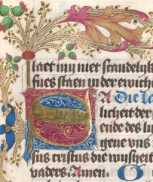 laet mij niet scandelijk
sues staen in der ewiche
A Die lau
licheit der
ende des ly
gene vns
sus cristus die vrijheit
vaders. Amen.